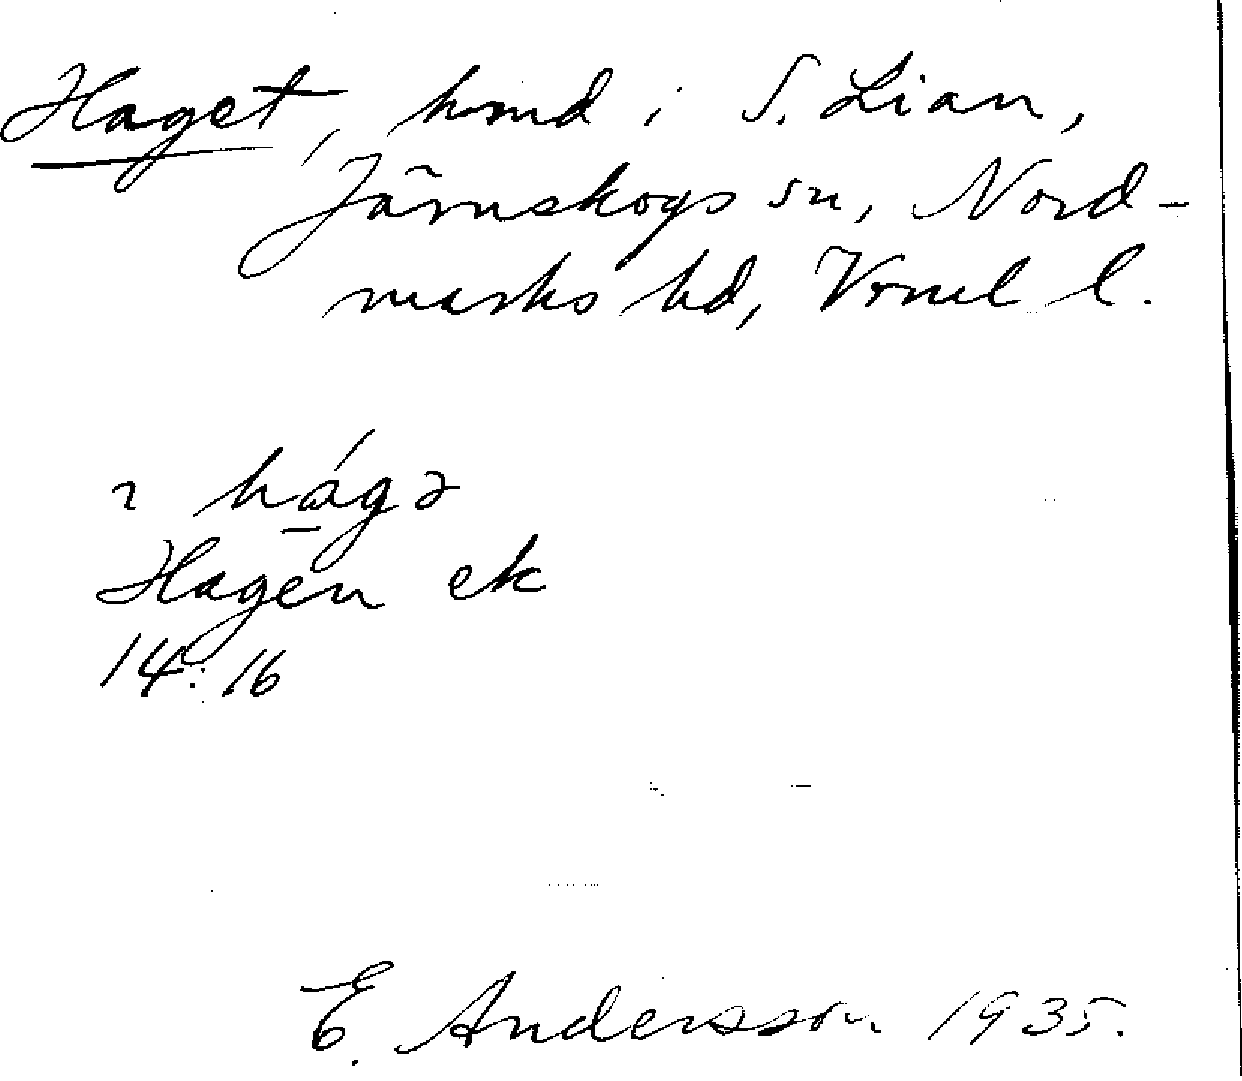 Haget, hmd i S. Lian,
Järnskogs sn, Nord-
marks hd, Vrml l.
2 hágə
Hagen ek
14:16
E. Andersson 1935.